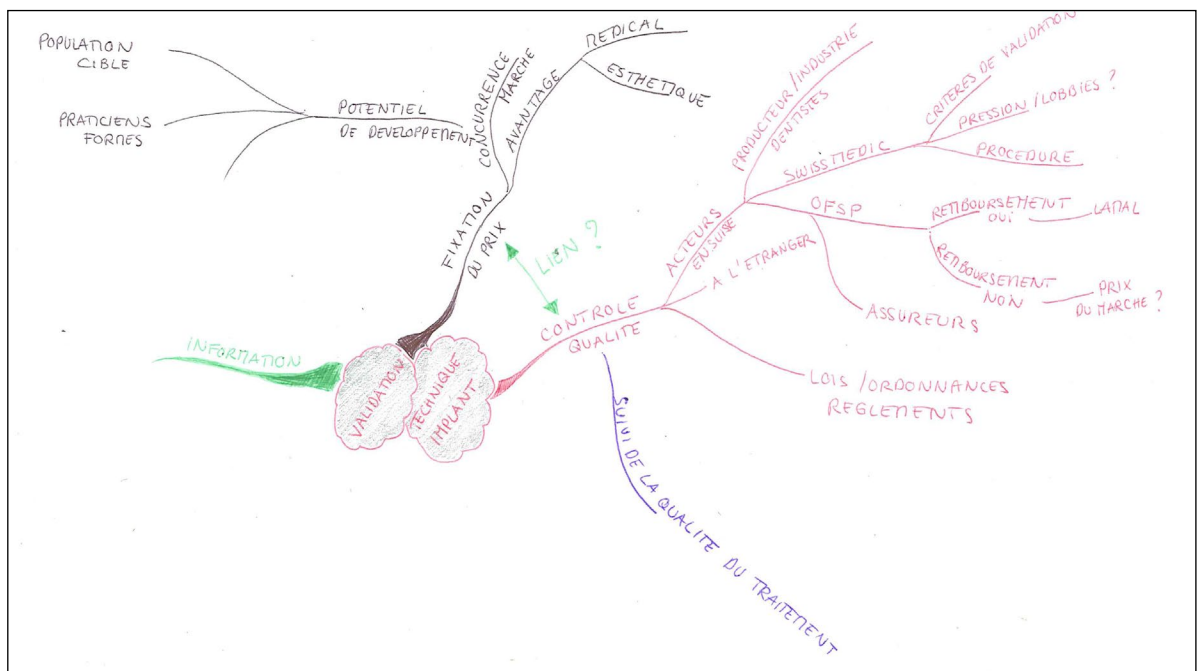 POPULATION
CIBLE
PRATICIENS
FORMES
POTENTIEL
DE DEVELOPPEMENT
CONCURRENCE
MARCHE
AVANTAGE
MEDICAL
ESTHETIQUE
FIXATION
DU PRIX
LIEN ?
INFORMATION
VALIDATION
TECHNIQUE
IMPLANT
CONTROLE
QUALITE
SUIVI DE LA QUALITE DU TRAITEMENT
ACTEURS
EN SUISE
PRODUCTEUR/INDUSTRIE
DENTISTES
SWISSMEDIC
CRITERES DE VALIDATION
PRESSION/LOBBIES ?
PROCEDURE
OFSP
REMBOURSEMENT
OUI
LAMAL
REMBOURSEMENT
NON
PRIX
DU MARCHE ?
ASSUREURS
A L'ETRANGER
LOIS/ORDONNANCES
REGLEMENTS